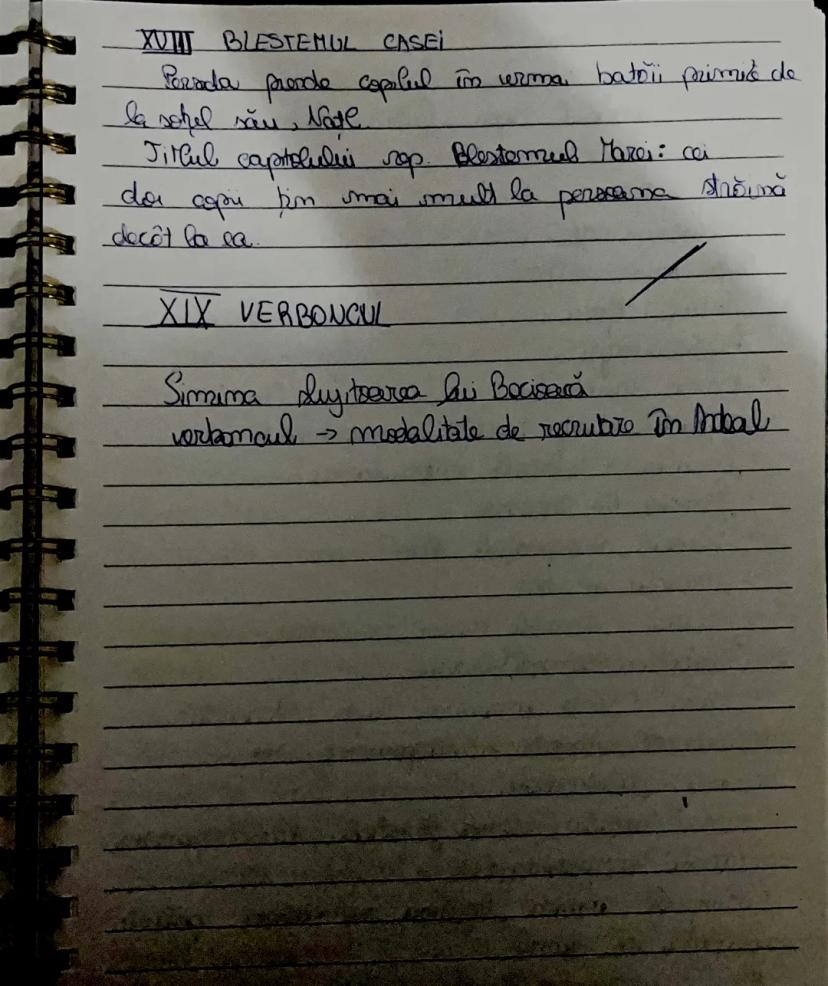 XVIII BLESTEMUL CASEI
Persida pierde copilul în urma bătăii primite de
la soțul său, Națl.
Titlul capitolului rep. Blestemul Marei: cei
doi copii țin mai mult la persoana străină
decât la ea.
XIX VERBONCUL
Simina slujitoarea lui Bocioacă
verboncul → modalitate de recrutare în Ardeal